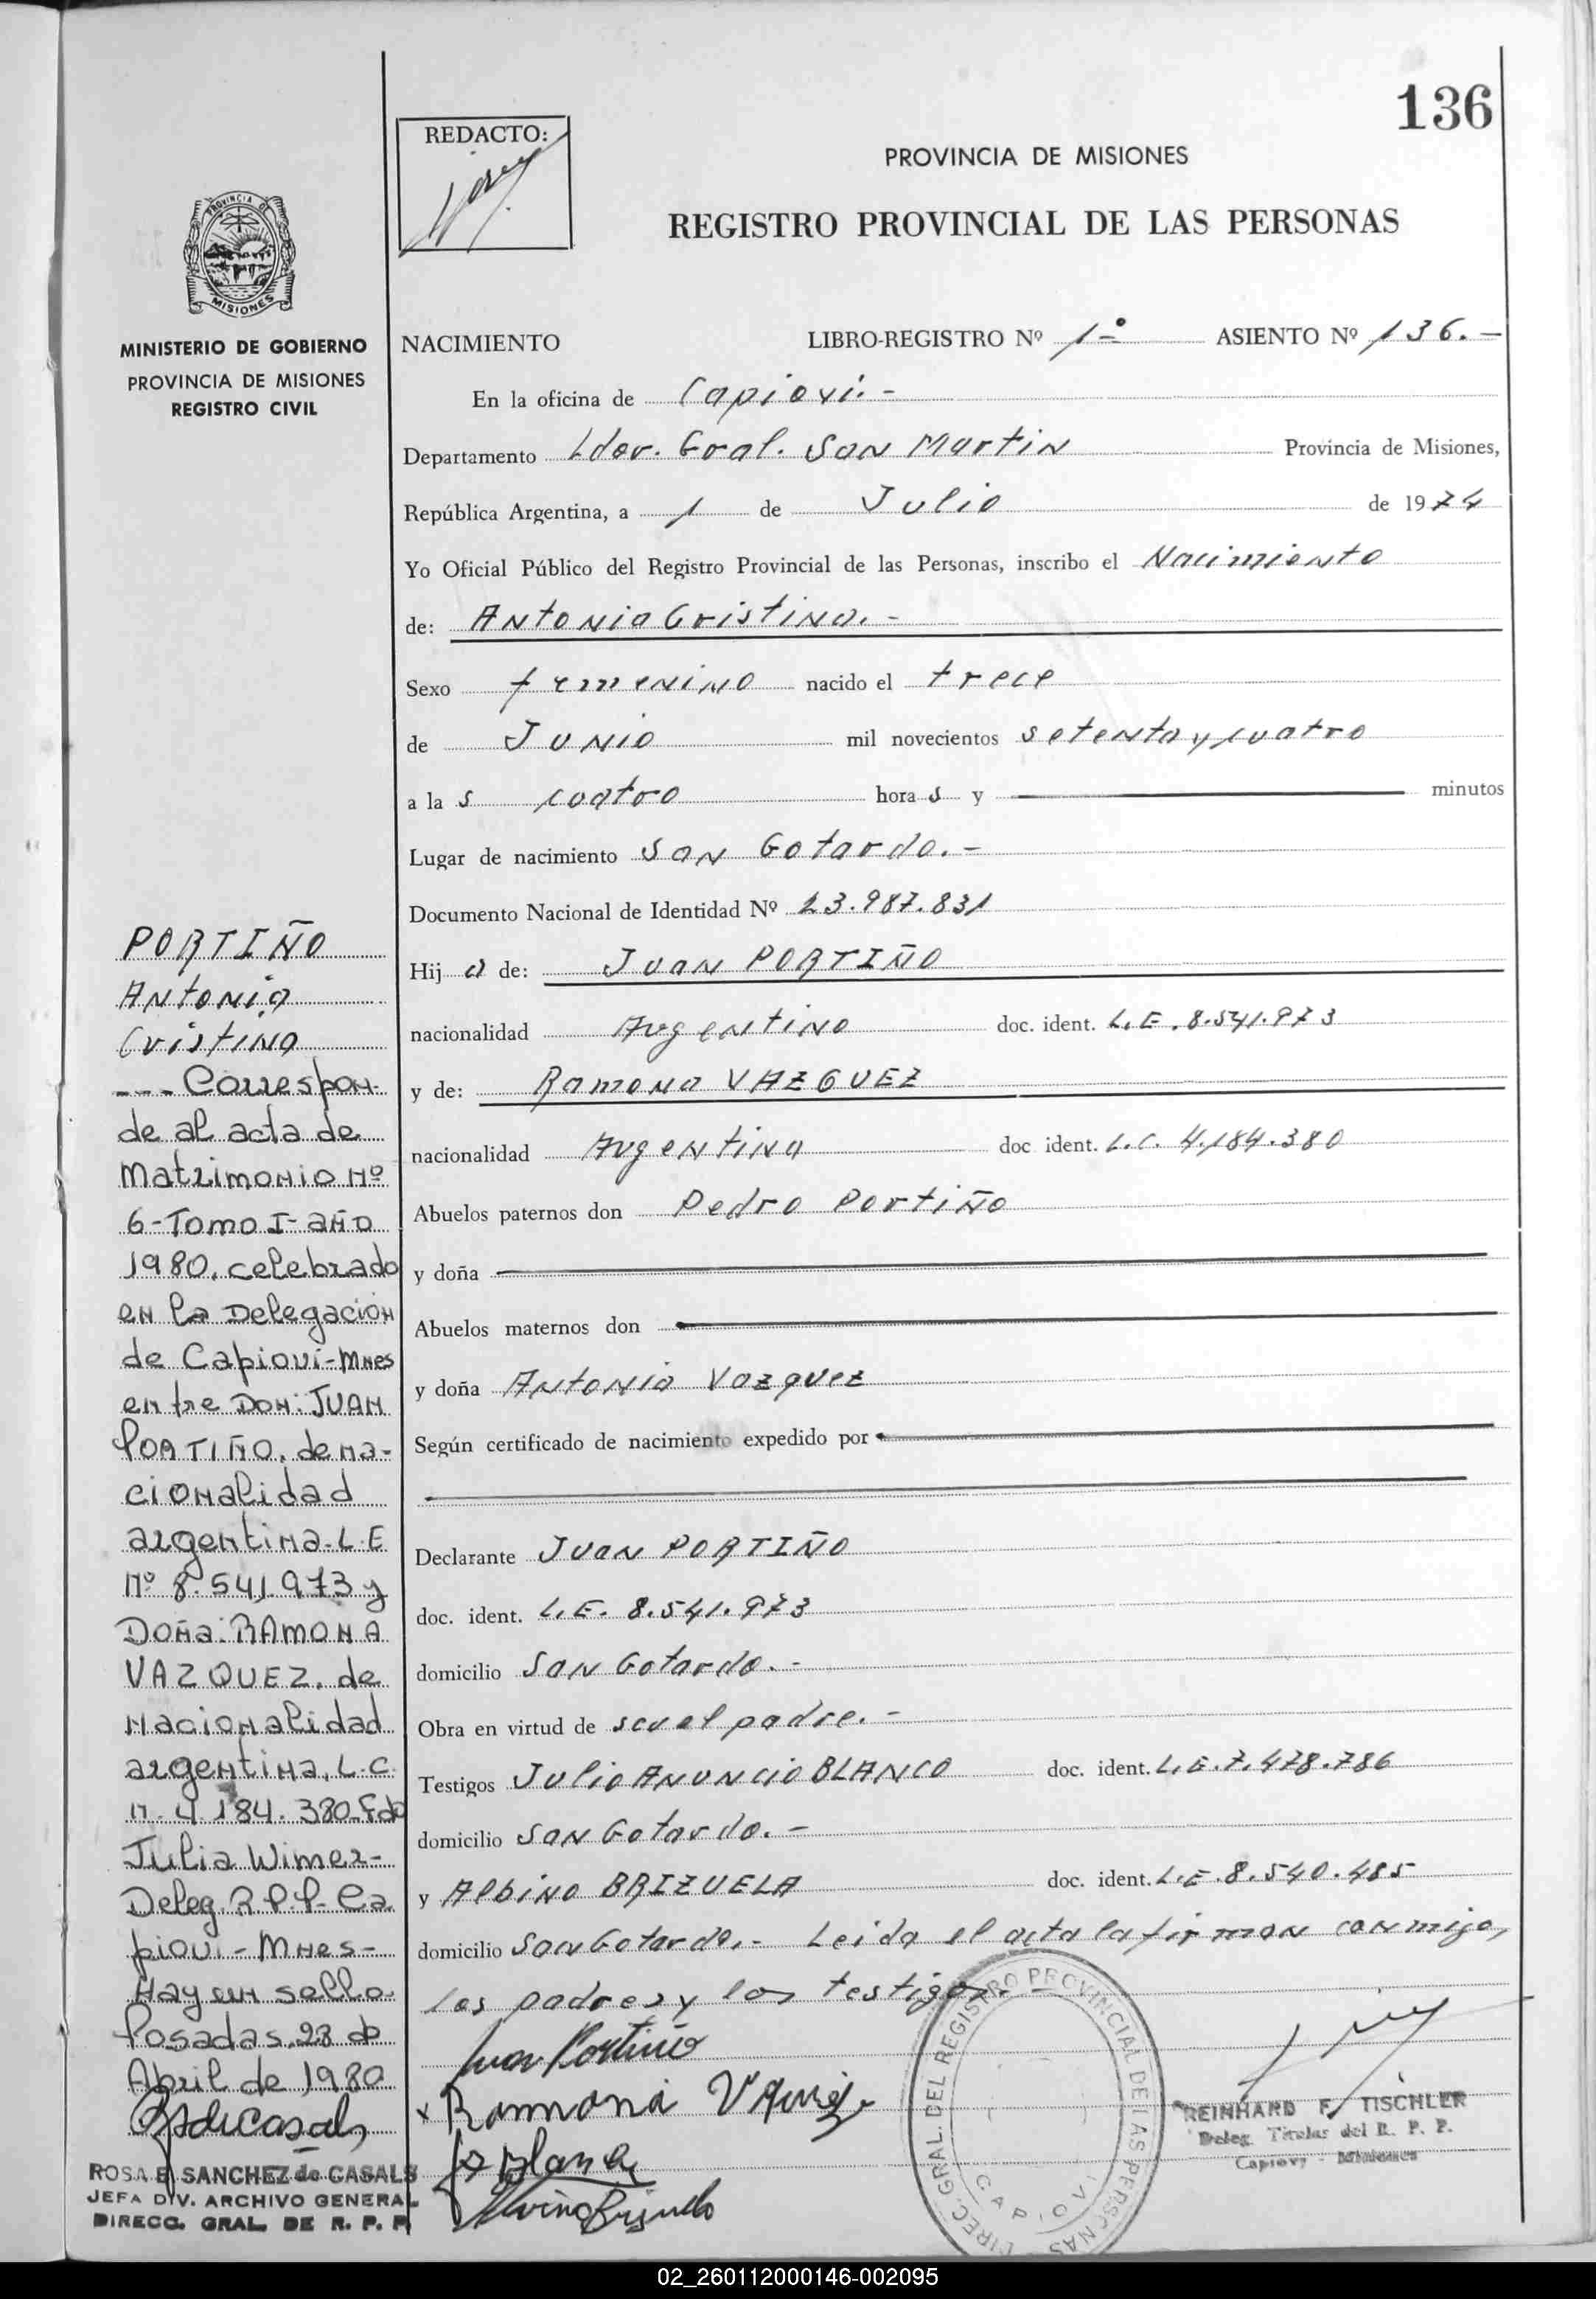 136
REDACTO:
PROVINCIA DE MISIONES
REGISTRO PROVINCIAL DE LAS PERSONAS
PROVINCIA DE
MISIONES
MINISTERIO DE GOBIERNO
PROVINCIA DE MISIONES
REGISTRO CIVIL
NACIMIENTO LIBRO-REGISTRO Nº 1º ASIENTO Nº 136.-
En la oficina de Capiovi.-
Departamento Ldor. Gral. San Martin Provincia de Misiones,
República Argentina, a 1 de Julio de 1974
Yo Oficial Público del Registro Provincial de las Personas, inscribo el Nacimiento
de: Antonia Cristina.-
Sexo femenino nacido el trece
de Junio mil novecientos setenta y cuatro
a la s cuatro hora s y minutos
Lugar de nacimiento San Gotardo.-
Documento Nacional de Identidad Nº 23.987.831
Hij a de: Juan PORTIÑO
nacionalidad Argentino doc. ident. L.E. 8.541.973
y de: Ramona VAZQUEZ
nacionalidad Argentina doc ident. L.C. 4.184.380
Abuelos paternos don Pedro Portiño
y doña
Abuelos maternos don
y doña Antonia Vazquez
Según certificado de nacimiento expedido por
Declarante Juan PORTIÑO
doc. ident. L.E. 8.541.973
domicilio San Gotardo.-
Obra en virtud de ser el padre.-
Testigos Julio Anuncio BLANCO doc. ident. L.E. 7.478.786
domicilio San Gotardo.-
y Albino BRIZUELA doc. ident. L.E. 8.540.485
domicilio San Gotardo.- Leida el acta la firman conmigo,
los padres y los testigos.-
Juan Portiño
x Ramona
DIREC. GRAL. DEL REGISTRO PROVINCIAL DE LAS PERSONAS
CAPIOVI
REINHARD F. TISCHLER
Deleg. Titular del R. P. P.
Capiovy - Misiones
PORTIÑO
Antonia
Cristina
--- Correspon-
de al acta de
Matrimonio Nº
6-Tomo I-año
1980. celebrado
en la Delegación
de Capiovi-Mnes
entre Don: JUAN
PORTIÑO, de na-
cionalidad
argentina-L.E
Nº 8.541.973 y
Doña: RAMONA
VAZQUEZ, de
nacionalidad
argentina, L.C.
n. 4.184.380-Fdo
Julia Wimer-
Deleg. R.P.P- Ca
piovi-Mnes-
Hay un sello.
Posadas, 28 de
Abril de 1980
ROSA E. SANCHEZ de CASALS
JEFA DIV. ARCHIVO GENERAL
DIRECC. GRAL. DE R. P. P.
02_260112000146-002095